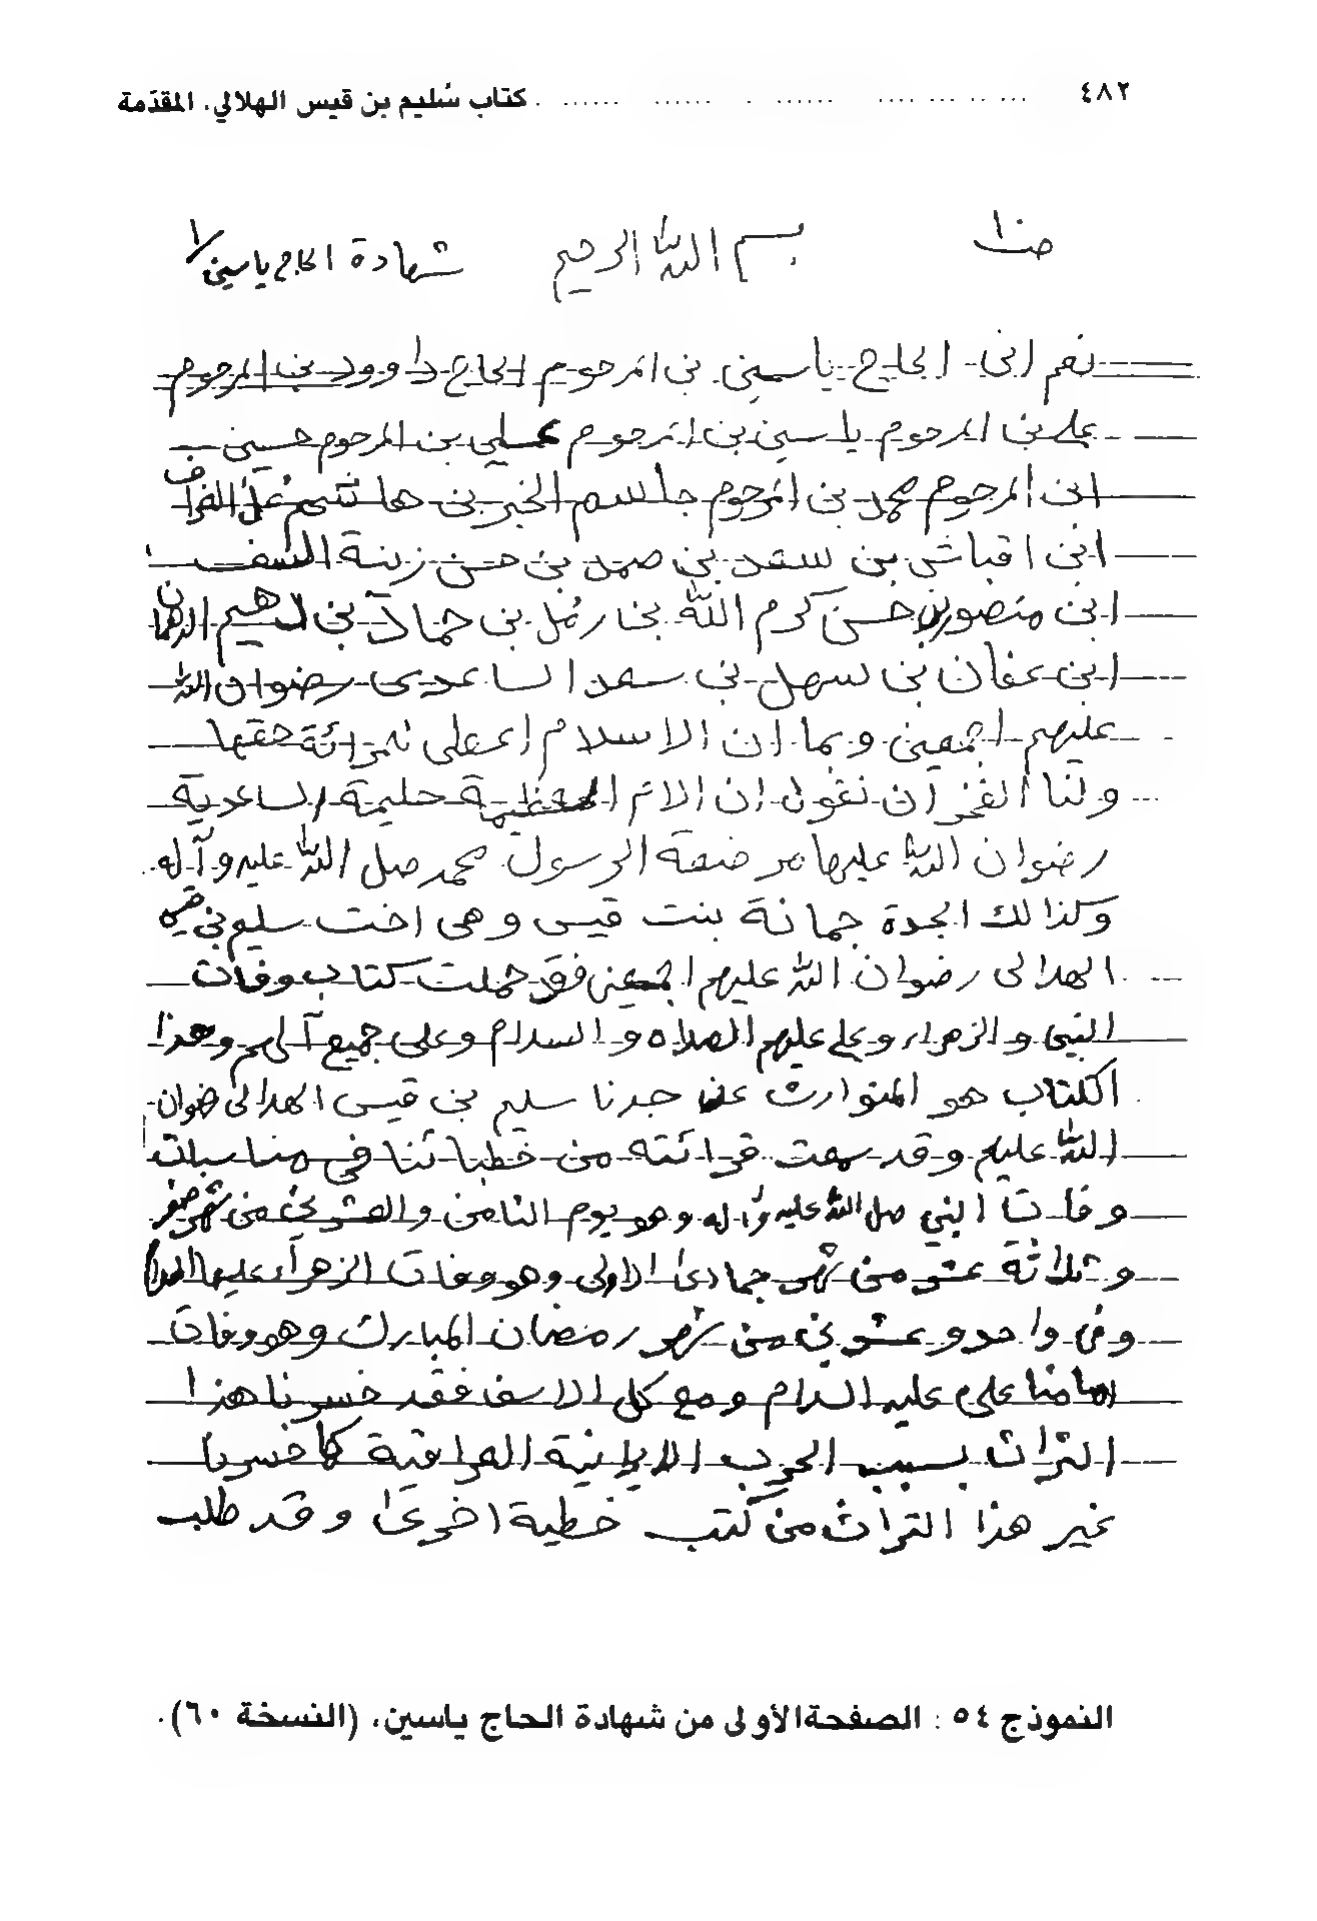 ٤٨٢ كتاب سُليم بن قيس الهلالي، المقدّمة
بسم الله الرحيم شهادة الحاج ياسين / ١
نعم انى الحاج ياسين بن المرحوم الحاج داوود بن المرحوم
علي بن المرحوم ياسين بن المرحوم علي بن المرحوم حسين
ابن المرحوم محمد بن المرحوم جاسم الخير بن هاشم
ابن اقباش بن سعد بن صمد بن حسن زينة
ابن منصور بن حسن كرم الله بن بن حماد بن
ابن عفان بن سهل بن سعد الساعدى رضوان الله
عليهم اجمعين وبما ان الاسلام اعطى للمرائة حقها
ولنا الفخر ان نقول ان الام العظيمة حليمة الساعدية
رضوان الله عليها مرضعة الرسول محمد صل الله عليه وآله
وكذالك الجدة جمانة بنت قيس وهى اخت سليم بن قيس
الهلالى رضوان الله عليهم اجمعين فقد حملت كتاب وفات
النبى والزهراء وعلي عليهم الصلاه والسلام وعلى جميع آلهم وهذا
الكتاب هو المتوارث عن جدنا سليم بن قيس الهلالى رضوان
الله عليهم وقد سمعت قرائته من خطبائنا فى مناسبات
وفات النبي صل الله عليه وآله وهو يوم الثامن والعشرين من شهر صفر
وثلاثة عشر من شهر جمادى الاولى وهو وفات الزهراء عليها السلام
وفى واحد وعشرين من شهر رمضان المبارك وهو وفات
امامنا علي عليه السلام ومع كل الاسف فقد خسرنا هذا
التراث بسبب الحرب الايرانية العراقية كما خسرنا
غير هذا التراث من كتب خطية اخرى وقد طلب
النموذج ٥٤ : الصفحة الأولى من شهادة الحاج ياسين، (النسخة ٦٠).